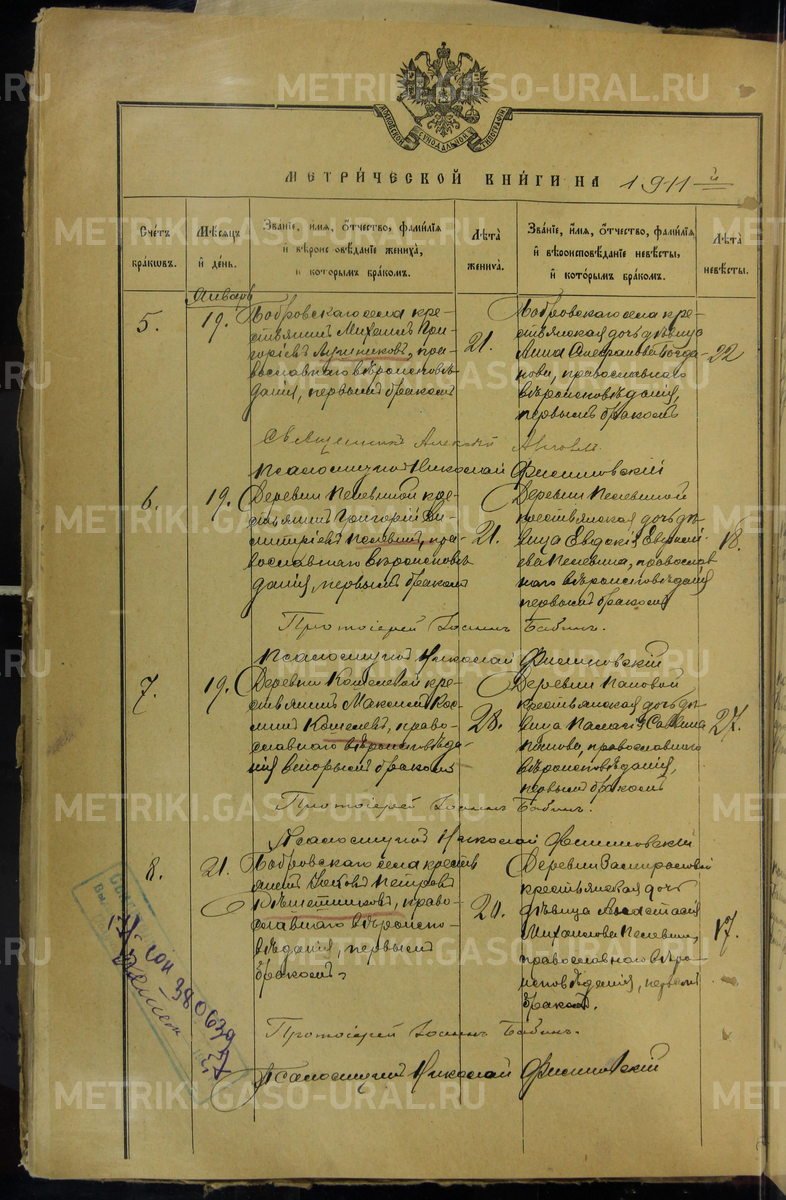 МОСКОВСКОЙ СѴНОДАЛЬНОЙ ТИПОГРАФІИ
МЕТРИ́ЧЕСКОЙ КНИ́ГИ НА 1911 й
Сче́тъ бра́ковъ.
Мѣ́сяцъ и де́нь.
Зва́ніе, и́мя, о́тчество, фами́лія и вѣроисповѣ́даніе жениха̀, и кото́рымъ бра́комъ.
Лѣ́та жениха̀.
Зва́ніе, и́мя, о́тчество, фами́лія и вѣроисповѣ́даніе невѣ́сты, и кото́рымъ бра́комъ.
Лѣ́та невѣ́сты.
Январь
5.
19.
Бобровскаго села кре-
стьянинъ Михаилъ Гри-
горіевъ Лушниковъ, пра-
вославнаго вѣроисповѣ-
данія, первымъ бракомъ
21.
Бобровскаго села кре-
стьянская дочь дѣвица
Богда-
нова, православнаго
вѣроисповѣданія,
первымъ бракомъ
22
Священникъ Алексій
Псаломщикъ Николай Филипповскій
6.
19.
Деревни Пелевиной кре-
стьянинъ Григорій Ди-
митріевъ Пелевинъ, пра-
вославнаго вѣроисповѣ-
данія, первымъ бракомъ
21.
Деревни Пелевиной
крестьянская дочь дѣ-
вица Евдокія
Пелевина, православ
наго вѣроисповѣданія
первымъ бракомъ
18.
Протоіерей Іоаннъ Бабинъ.
Псаломщикъ Николай Филипповскій
7.
19.
Деревни Кошелевой кре-
стьянинъ Максимъ Кос-
минъ Кошелевъ, право-
славнаго вѣроисповѣда-
нія вторымъ бракомъ
28.
Деревни Поповой
крестьянская дочь дѣ-
вица Пелагія Саввина
Попова, православнаго
вѣроисповѣданія,
первымъ бракомъ
27.
Протоіерей Іоаннъ Бабинъ.
Псаломщикъ Николай Филипповскій
8.
21.
Бобровскаго села кресть
янинъ Іаковъ Петровъ
Рѣшетниковъ, право-
славнаго вѣроиспо-
вѣданія, первымъ
бракомъ.
20.
Деревни
крестьянская дочь
дѣвица Анастасія
Михаилова Пелевина,
православнаго вѣро-
исповѣданія, первымъ
бракомъ.
17.
Протоіерей Іоаннъ Бабинъ.
Псаломщикъ Николай Филипповскій
METRIKI.GASO-URAL.RU